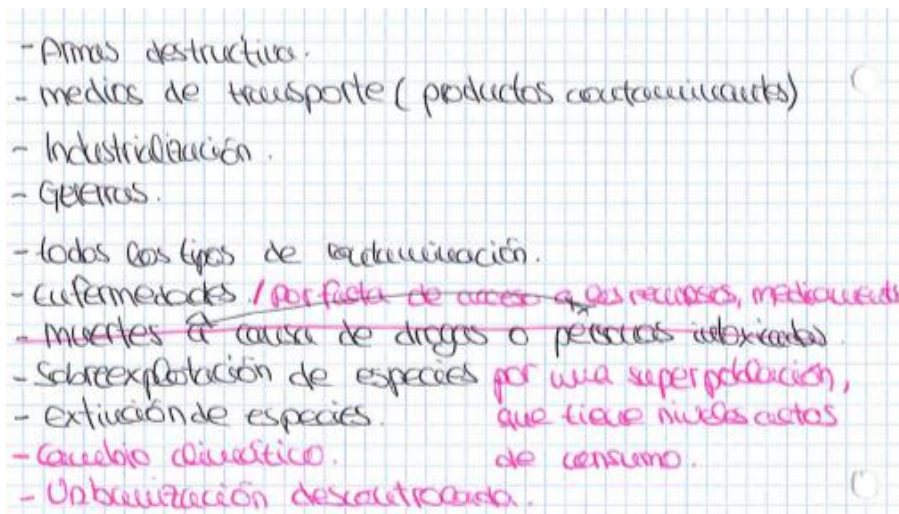 - Armas destructiva.
- medios de transporte ( productos contaminantes)
- Industrialización.
- Guerras.
- todos los tipos de contaminación.
- Enfermedades / por falta de acceso a los recursos, medicamentos
- muertes a causa de drogas o personas intoxicadas
- Sobreexplotación de especies por una superpoblación,
- extinción de especies. que tiene niveles altos
- Cambio climático. de consumo.
- Urbanización descontrolada.